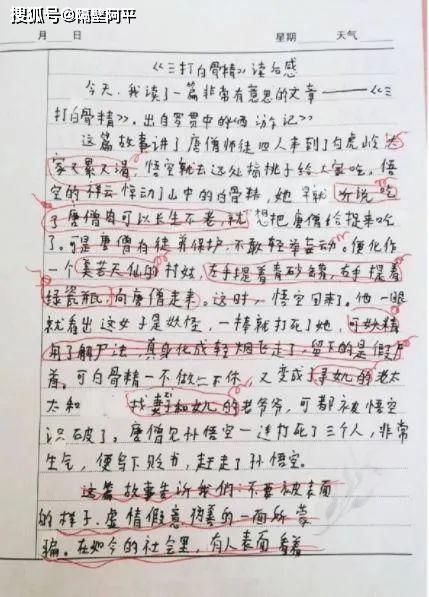 搜狐号@隔壁阿平
月 日 星期 天气
《三打白骨精》读后感
今天,我读了一篇非常有意思的文章——《三
打白骨精》,出自罗贯中的《西游记》
这篇故事讲了唐僧师徒四人来到了白虎岭,大
家又累又渴,悟空就去远处摘桃子给大家吃,悟
空的祥云惊动了山中的白骨精,她早就听说吃
了唐僧肉可以长生不老,就想把唐僧给捉来吃
了。可是唐僧有徒弟保护,不敢轻举妄动。便化作
一个美若天仙的村姑,左手提着青砂罐,右手提着
绿瓷瓶,向唐僧走来。这时,悟空回来了。他一眼
就看出这女子是妖怪,一棒就打死了她,可妖精
用了解尸法,真身化成轻烟飞走了,留下的是假尸
首。可白骨精一不做二不休,又变成了寻女儿的老太
太和 找妻子和女儿的老爷爷,可都被悟空
识破了。唐僧见孙悟空一连打死了三个人,非常
生气,便写下贬书,赶走了孙悟空。
这篇故事告诉我们:不要被表面
的样子、虚情假意伪善的一面所蒙
骗。在如今的社会里,有人表面看着